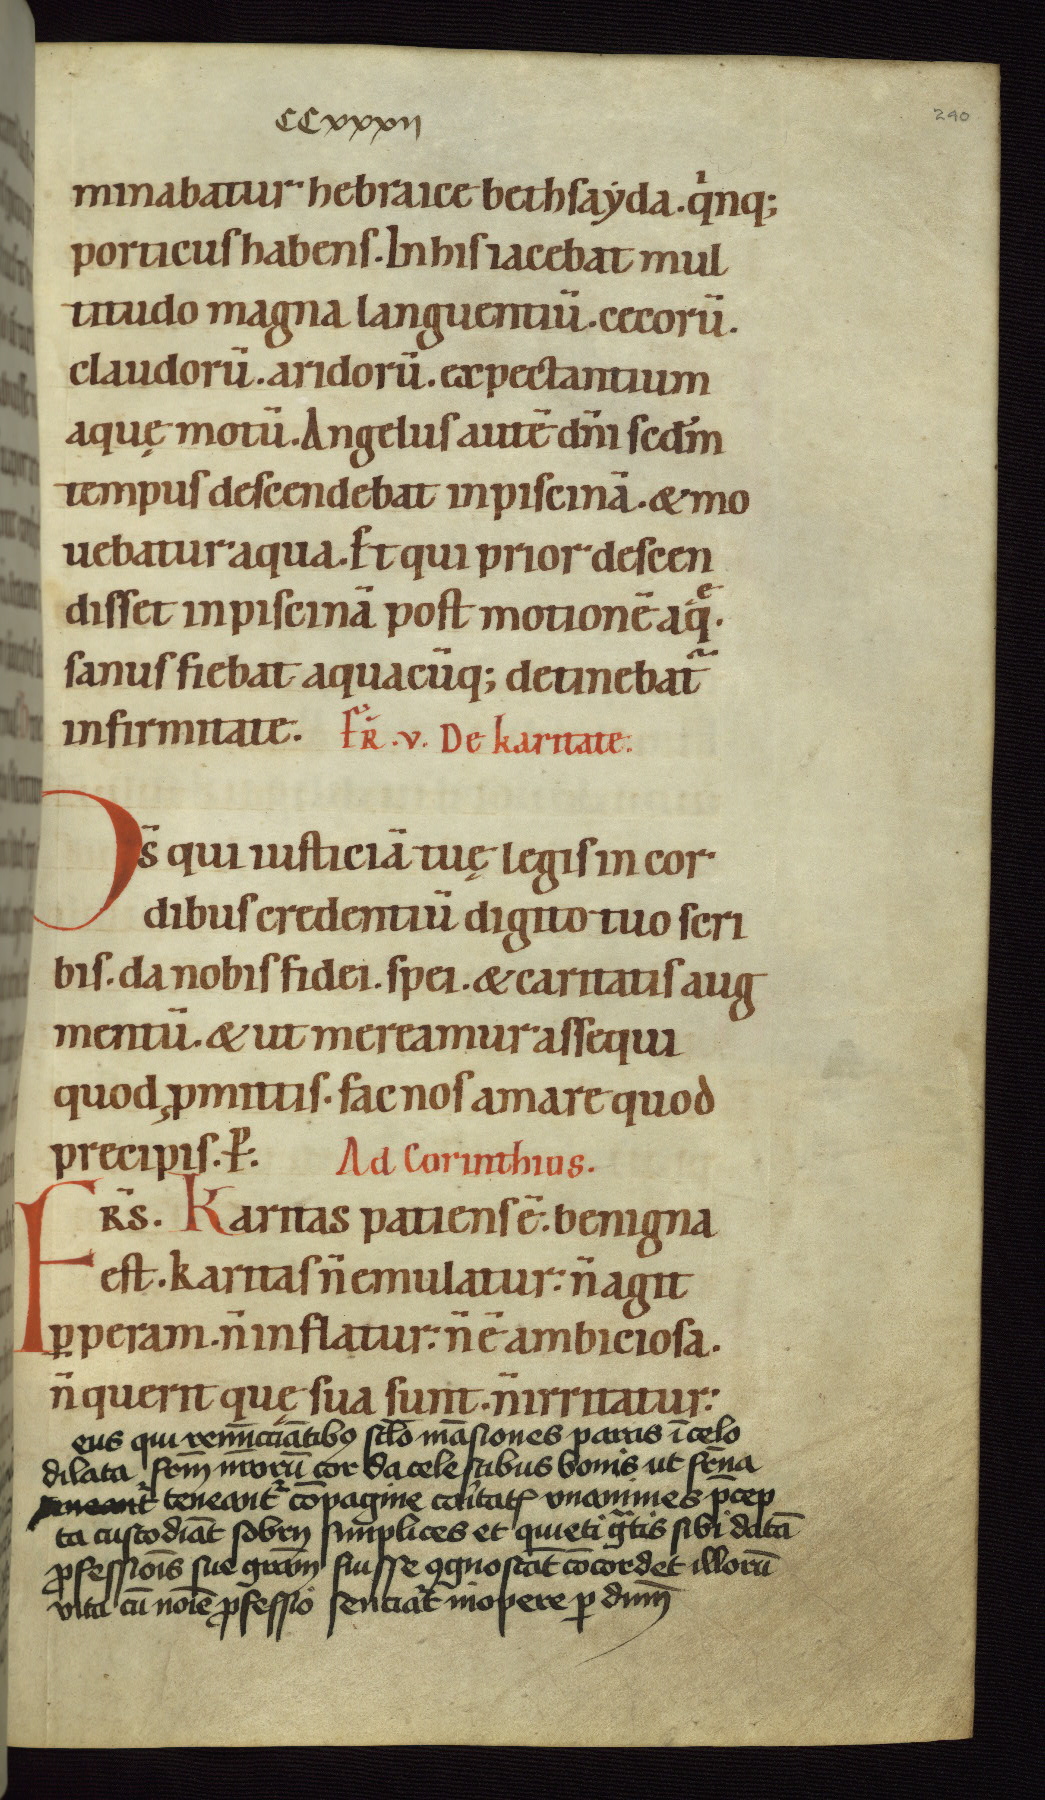 CCxxxii
240
minabatur hebraice bethsayda. qinq;
porticus habens. In his iacebat mul
titudo magna languentiū. cecorū.
claudorū. aridorū. expectantium
aquę motū. Angelus autē dn̄i scdm̄
tempus descendebat in piscinā. & mo
uebatur aqua. Et qui prior descen
disset in piscinā post motionē aqͤ.
sanus fiebat aquacūq; detinebat᷑
infirmitate. Fr̄. v. De karitate:
Ds̄ qui iusticiā tuę legis in cor
dibus credentiū digito tuo scri
bis. da nobis fidei. spei. & caritatis aug
mentū. & ut mereamur assequi
quod ꝓmittis. fac nos amare quod
precipis. P̄. Ad Corinthios.
FRS̄. Karitas patiens ē. benigna
est. karitas n̄ emulatur. n̄ agit
ꝑperam. n̄ inflatur. n̄ ē ambiciosa.
n̄ querit quę sua sunt. n̄ irritatur.
eus qui renūciātibꝰ sclo māsiones paras ī celo
dilata cor da celestibus bonis ut
teneant᷑ cōpagine unanimes p̄cep
ta custodiāt sobrij simplices et quieti gͣtis sibi datā
ꝓfessiōis sue grām fuisse ꝯgnoscāt cōcordet illorū
vita cū noīe ꝓfessio senciat᷑ in opere ꝑ dnm̄